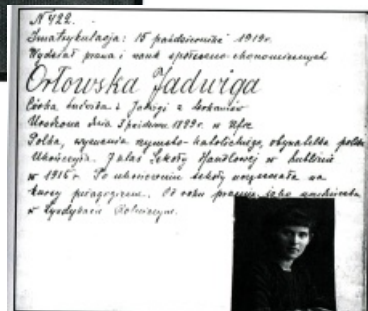 N 422.
Imatrykulacja: 15 października 1919r.
Wydział prawa i nauk społeczno-ekonomicznych
Orłowska Jadwiga
Córka Ludwika i Jadwigi z
Urodzona dnia 3 1899r. w Ufie
Polka, wyznania rzymsko-katolickiego, obywatelka polska
Ukończyła 7 klas Szkoły Handlowej w Lublinie
w 1916r. Po ukończeniu szkoły uczęszczała na
kursy pedagogiczne. Od roku pracuje jako urzędniczka
w Syndykacie Rolniczym.